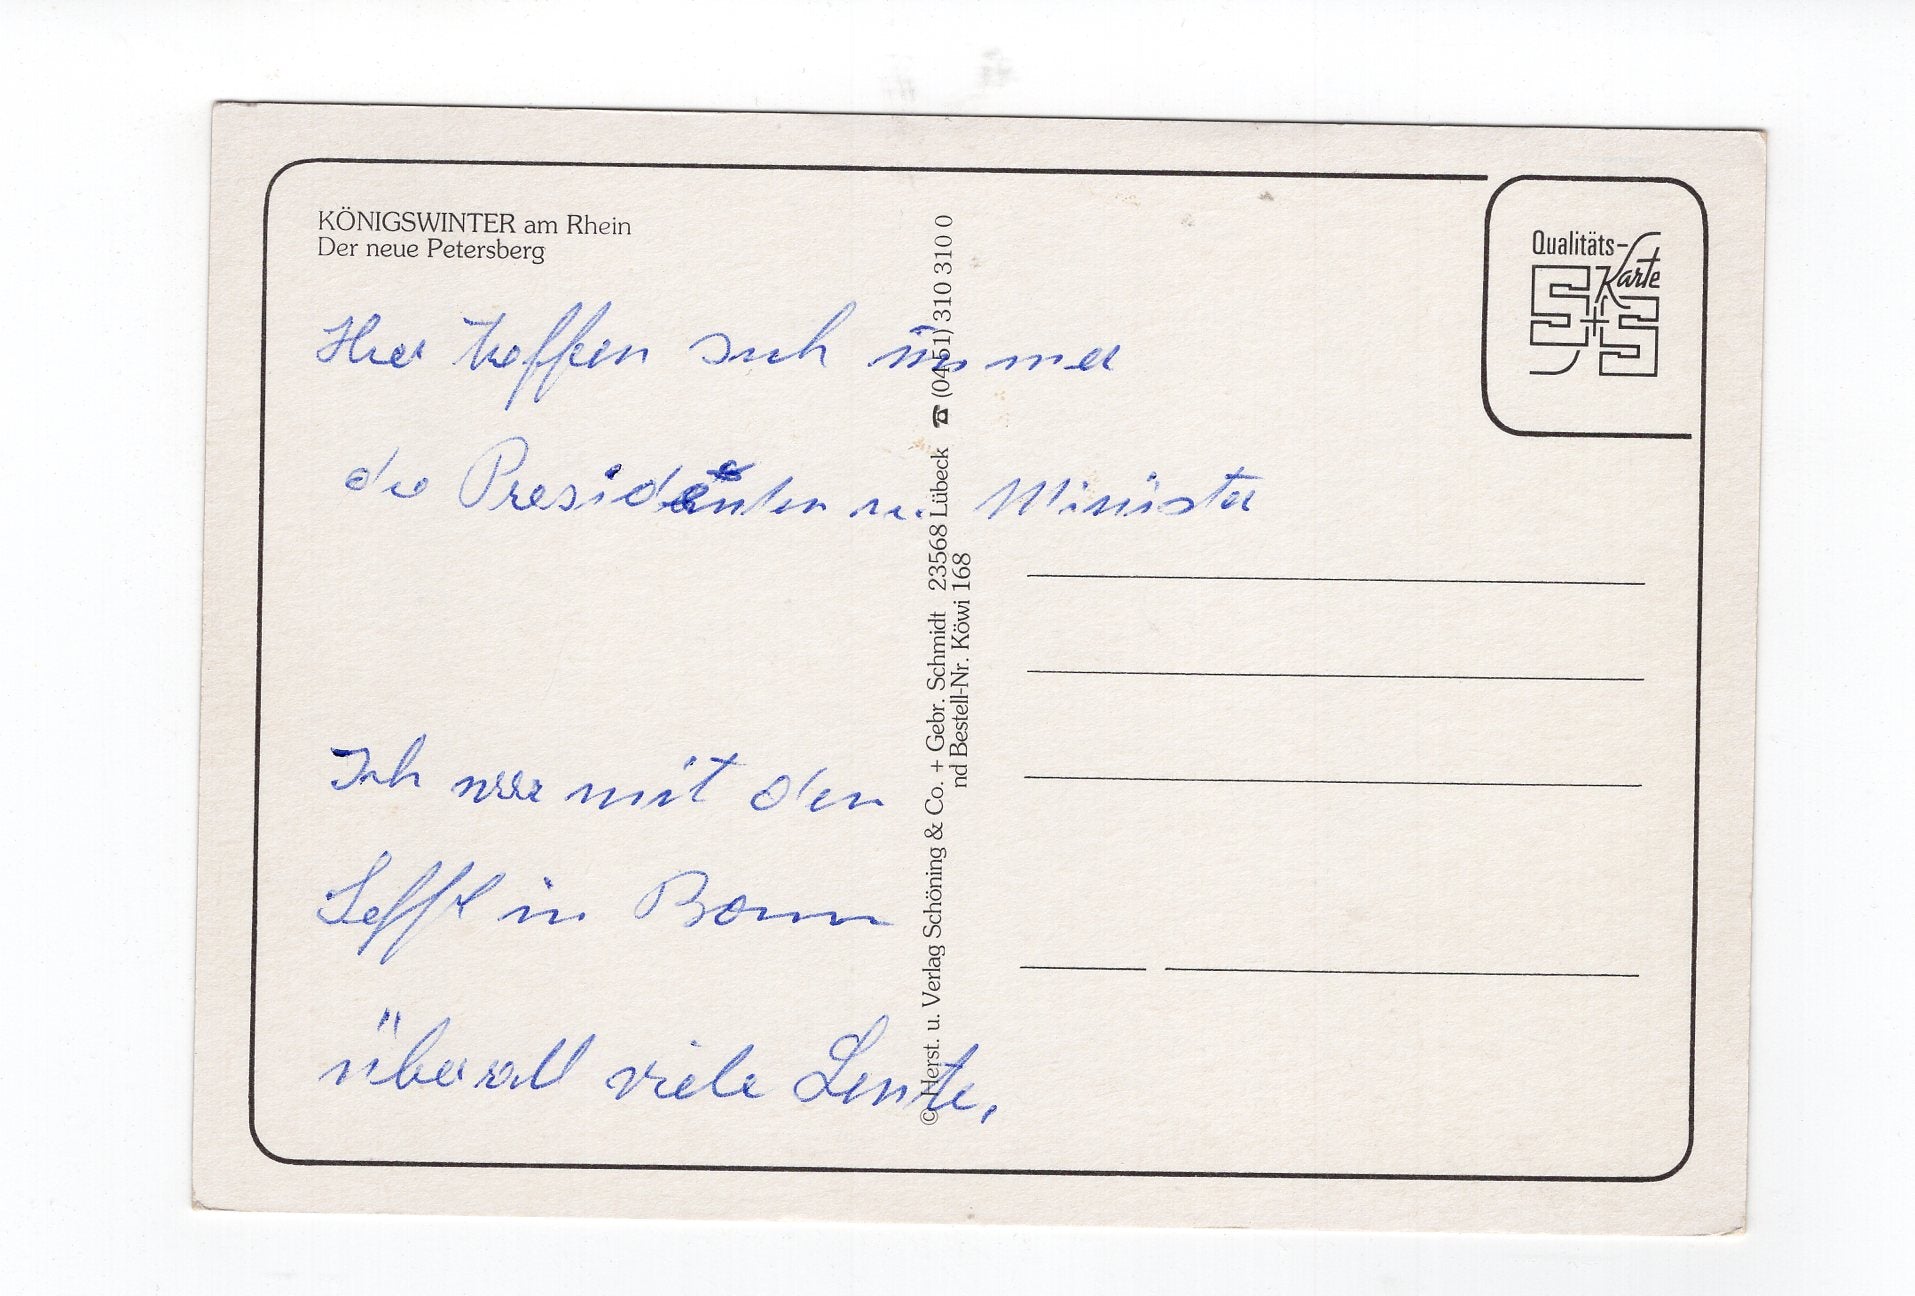 KÖNIGSWINTER am Rhein
Der neue Petersberg
Hier treffen sich immer
die Presidenten u. Minister
Ich war mit den
in Bonn
überall viele Leute.
© Herst. u. Verlag Schöning & Co. + Gebr. Schmidt 23568 Lübeck ☎ (0451) 310 310 0
nd Bestell-Nr. Köwi 168
Qualitäts-
Karte
S+S